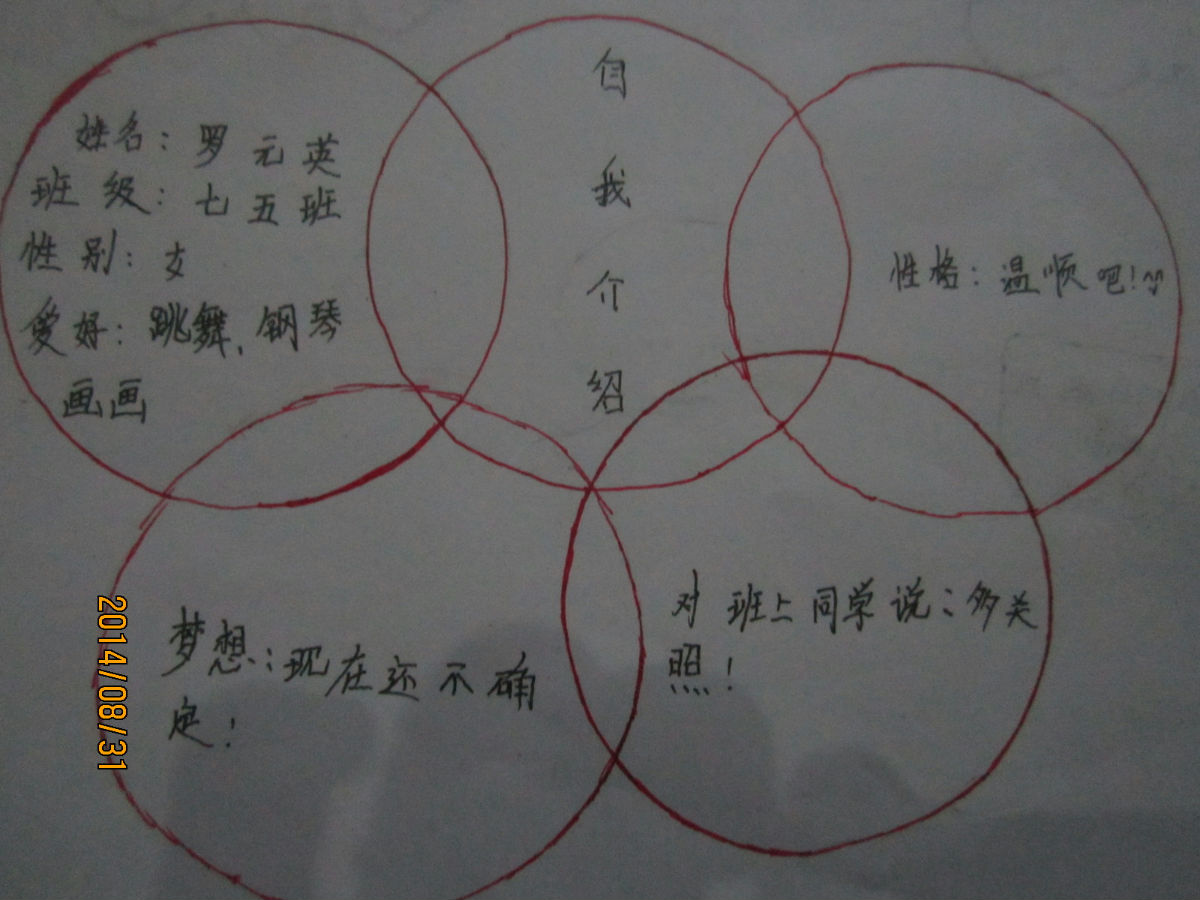 自我介绍
姓名：罗元英
班级：七五班
性别：女
爱好：跳舞，钢琴
画画
性格：温顺吧！
梦想：现在还不确
定！
对班上同学说：多关
照！
2014/08/31